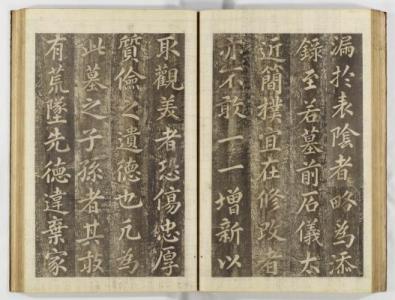 漏於表陰者略為添
錄至若墓前石儀太
近簡樸宜在修改者
亦不敢一一增新以
取觀美者恐傷忠厚
質儉之遺德也凡為
此墓之子孫者其敢
有荒墜先德違棄家